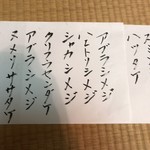 ハツタケ
アブラシメジ
ハエトリシメジ
シロカシメジ
クリフウセンタケ
アブラシメジ
ヌメリササタケ